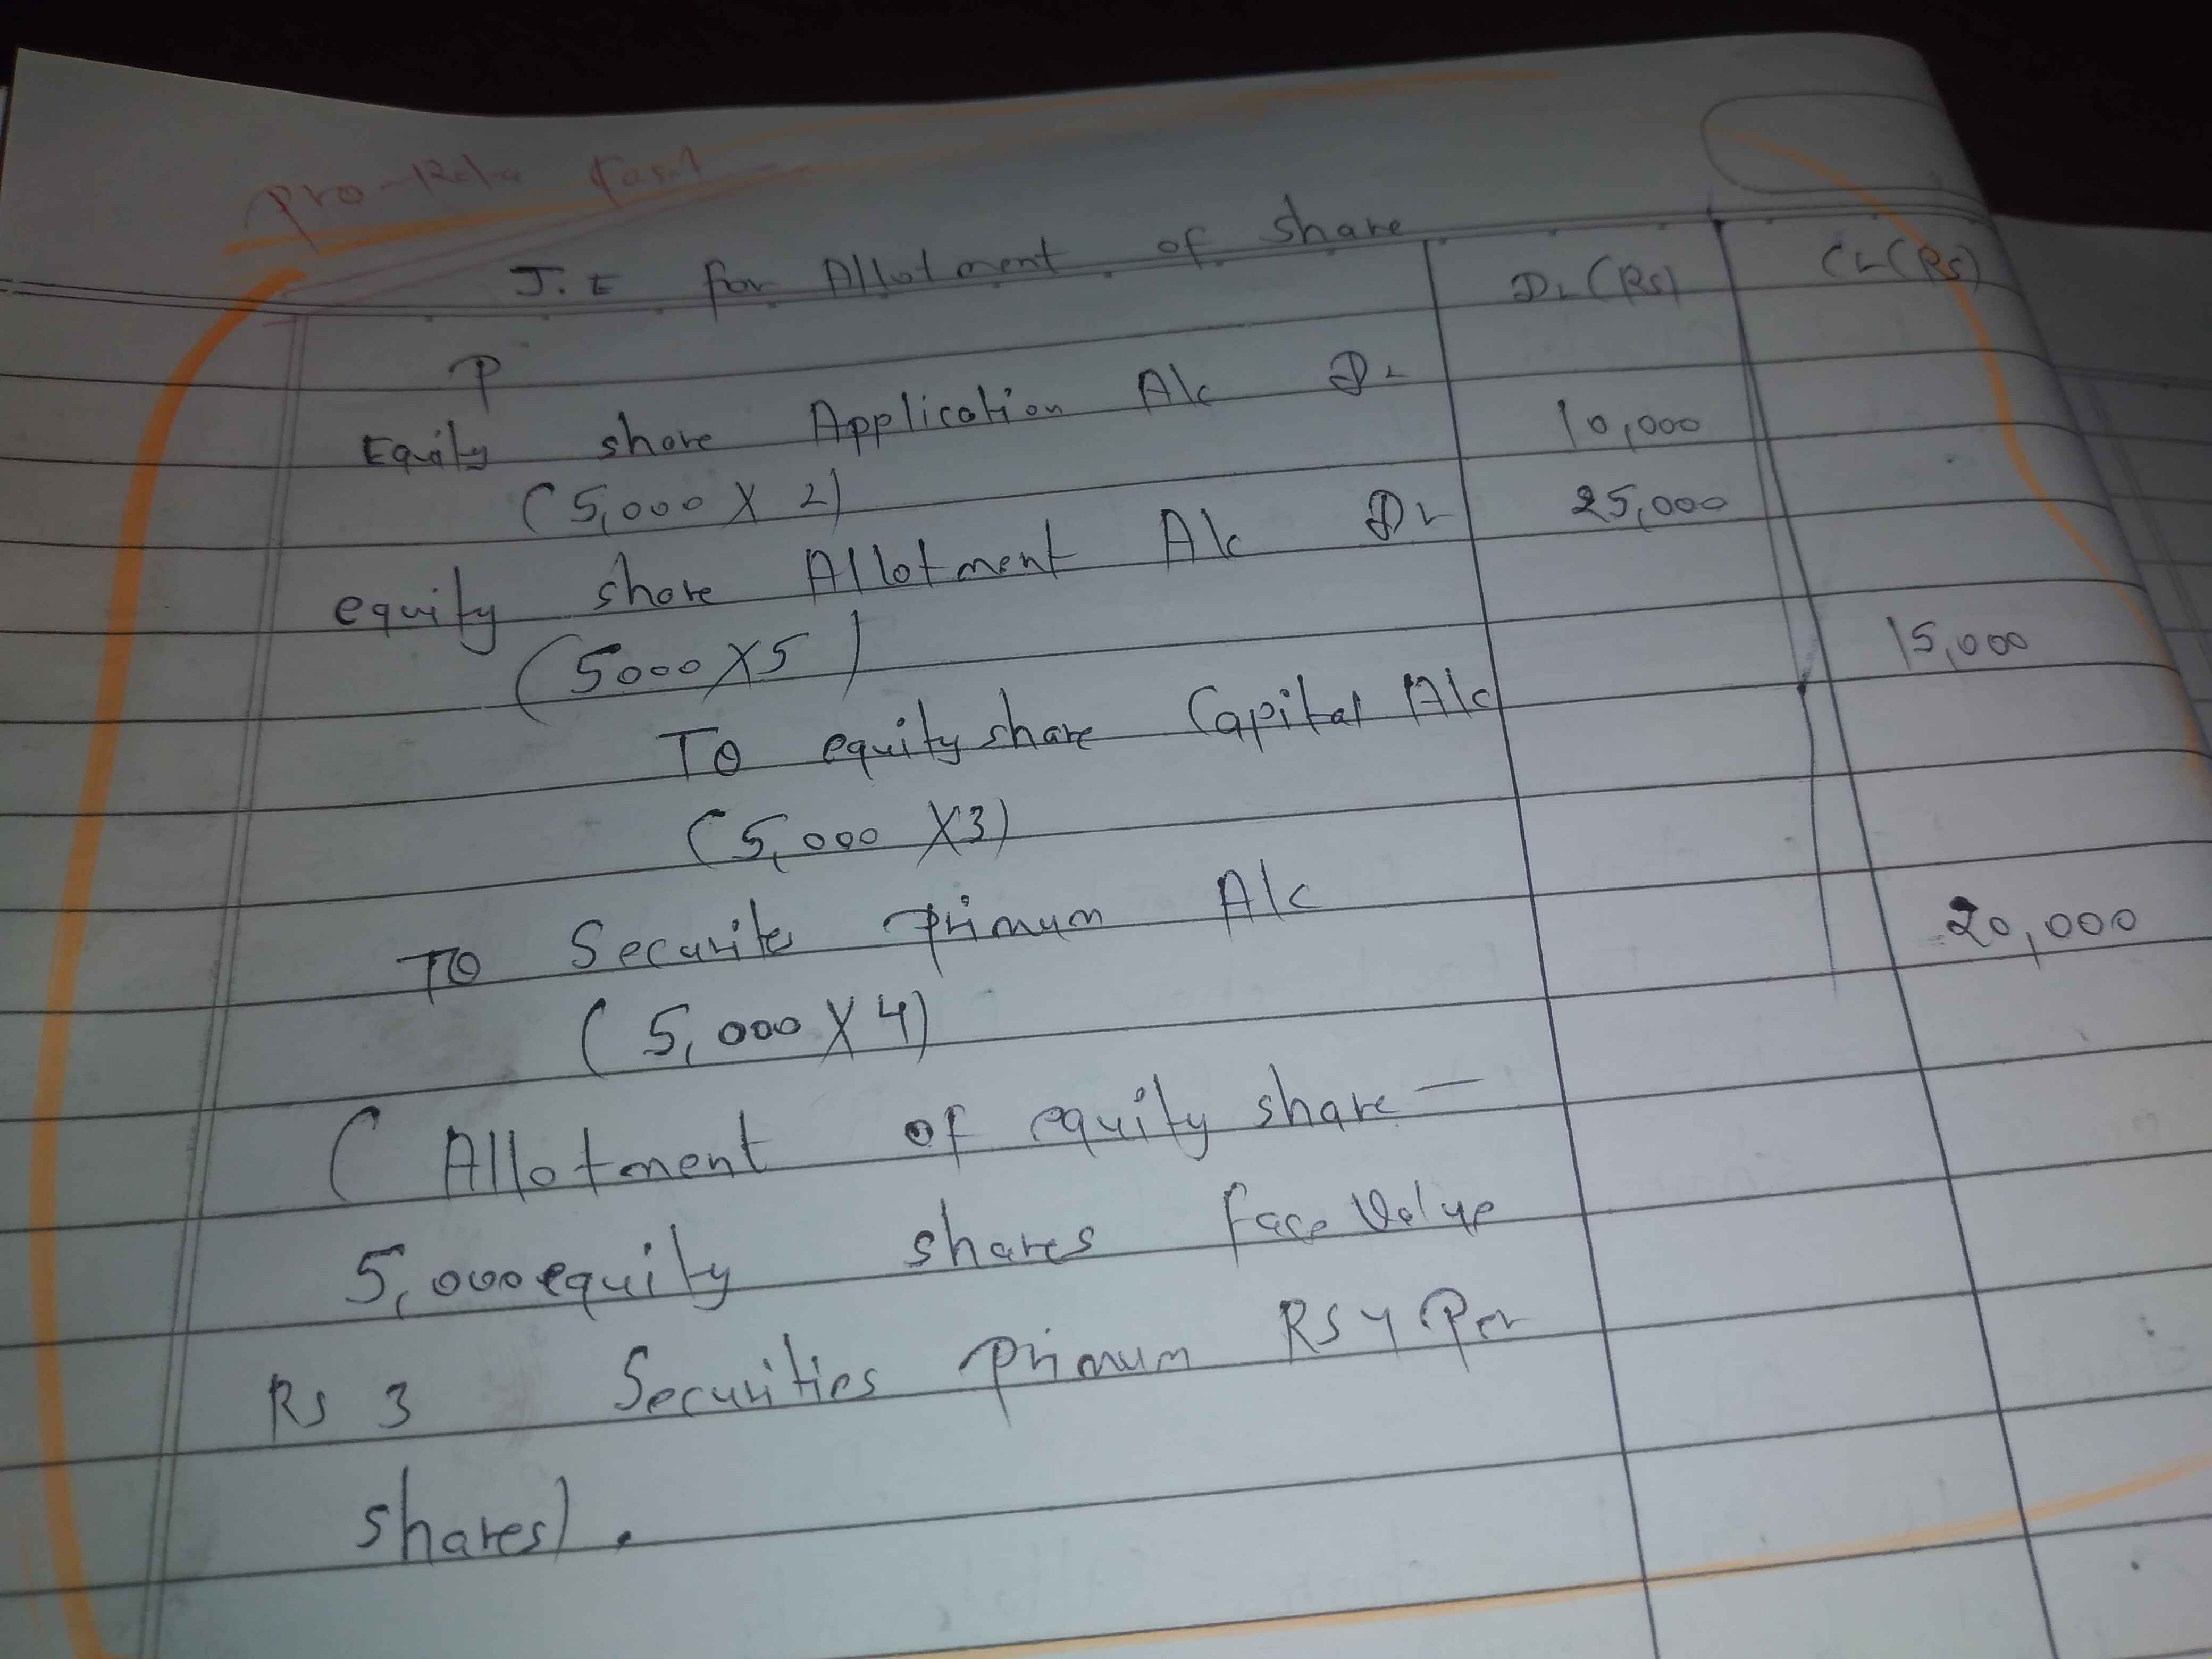 pro-Rata
J.E for Allotment of share Dr (RS) Cr (RS)
P
Equity share Application A/c Dr 10,000
(5,000 X 2)
equity share Allotment A/c Dr 25,000
(5000 X 5)
To equity share Capital A/c 15,000
(5,000 X 3)
To Securites primum A/c 20,000
(5,000 X 4)
(Allotment of equity share —
5,000 equity shares face Value
RS 3 Securities primum RS 4 Per
shares).